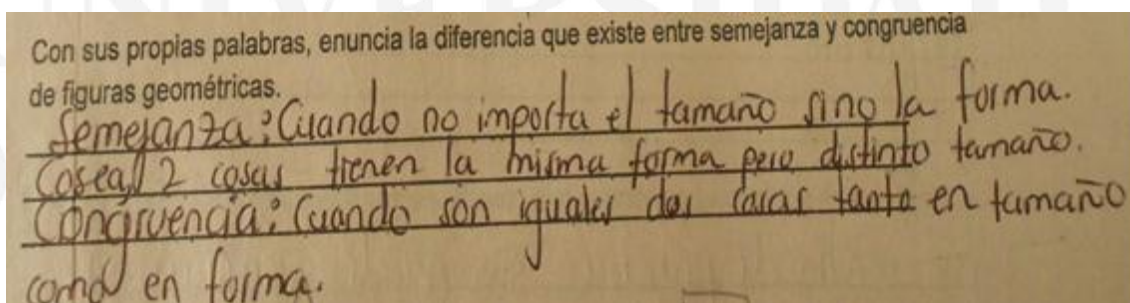 Con sus propias palabras, enuncia la diferencia que existe entre semejanza y congruencia
de figuras geométricas.
Semejanza: Cuando no importa el tamaño sino la forma.
(osea) 2 cosas tienen la misma forma pero distinto tamaño.
Congruencia: Cuando son iguales dos caras tanto en tamaño
como en forma.